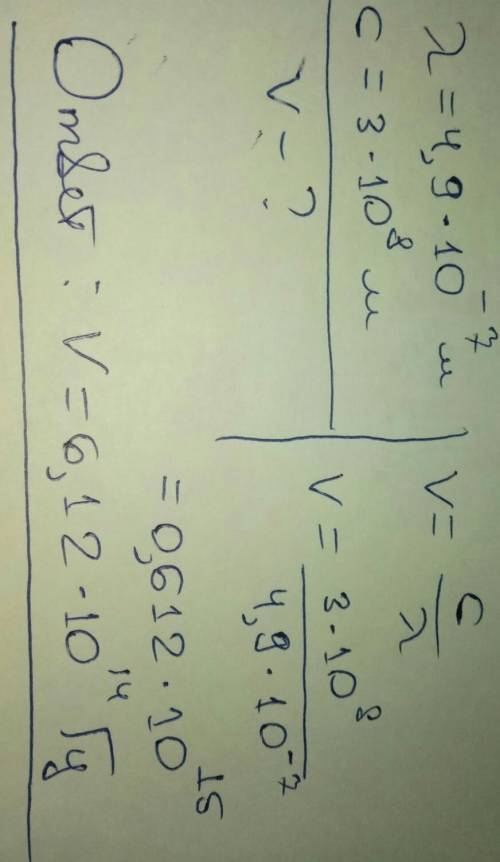 λ = 4,9 · 10⁻⁷ м
c = 3 · 10⁸ м
ν - ?
ν = c/λ
ν = 3 · 10⁸ / 4,9 · 10⁻⁷
= 0,612 · 10¹⁵
Ответ : ν = 6,12 · 10¹⁴ Гц